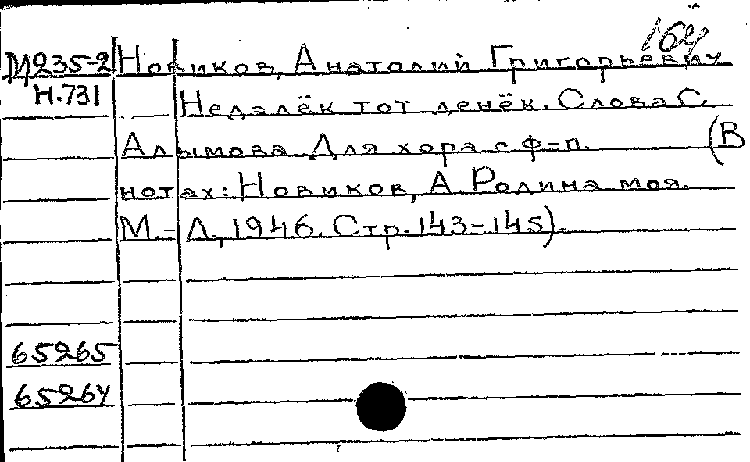 164
Ц235-2 Новиков, Анатолий Григорьевич
Н.731 Недалёк тот денёк. Слова С.
Алымова. Для хора с ф-п. (В
нотах: Новиков, А. Родина моя.
М.-Л., 1946. Стр. 143-145).
65265
65264